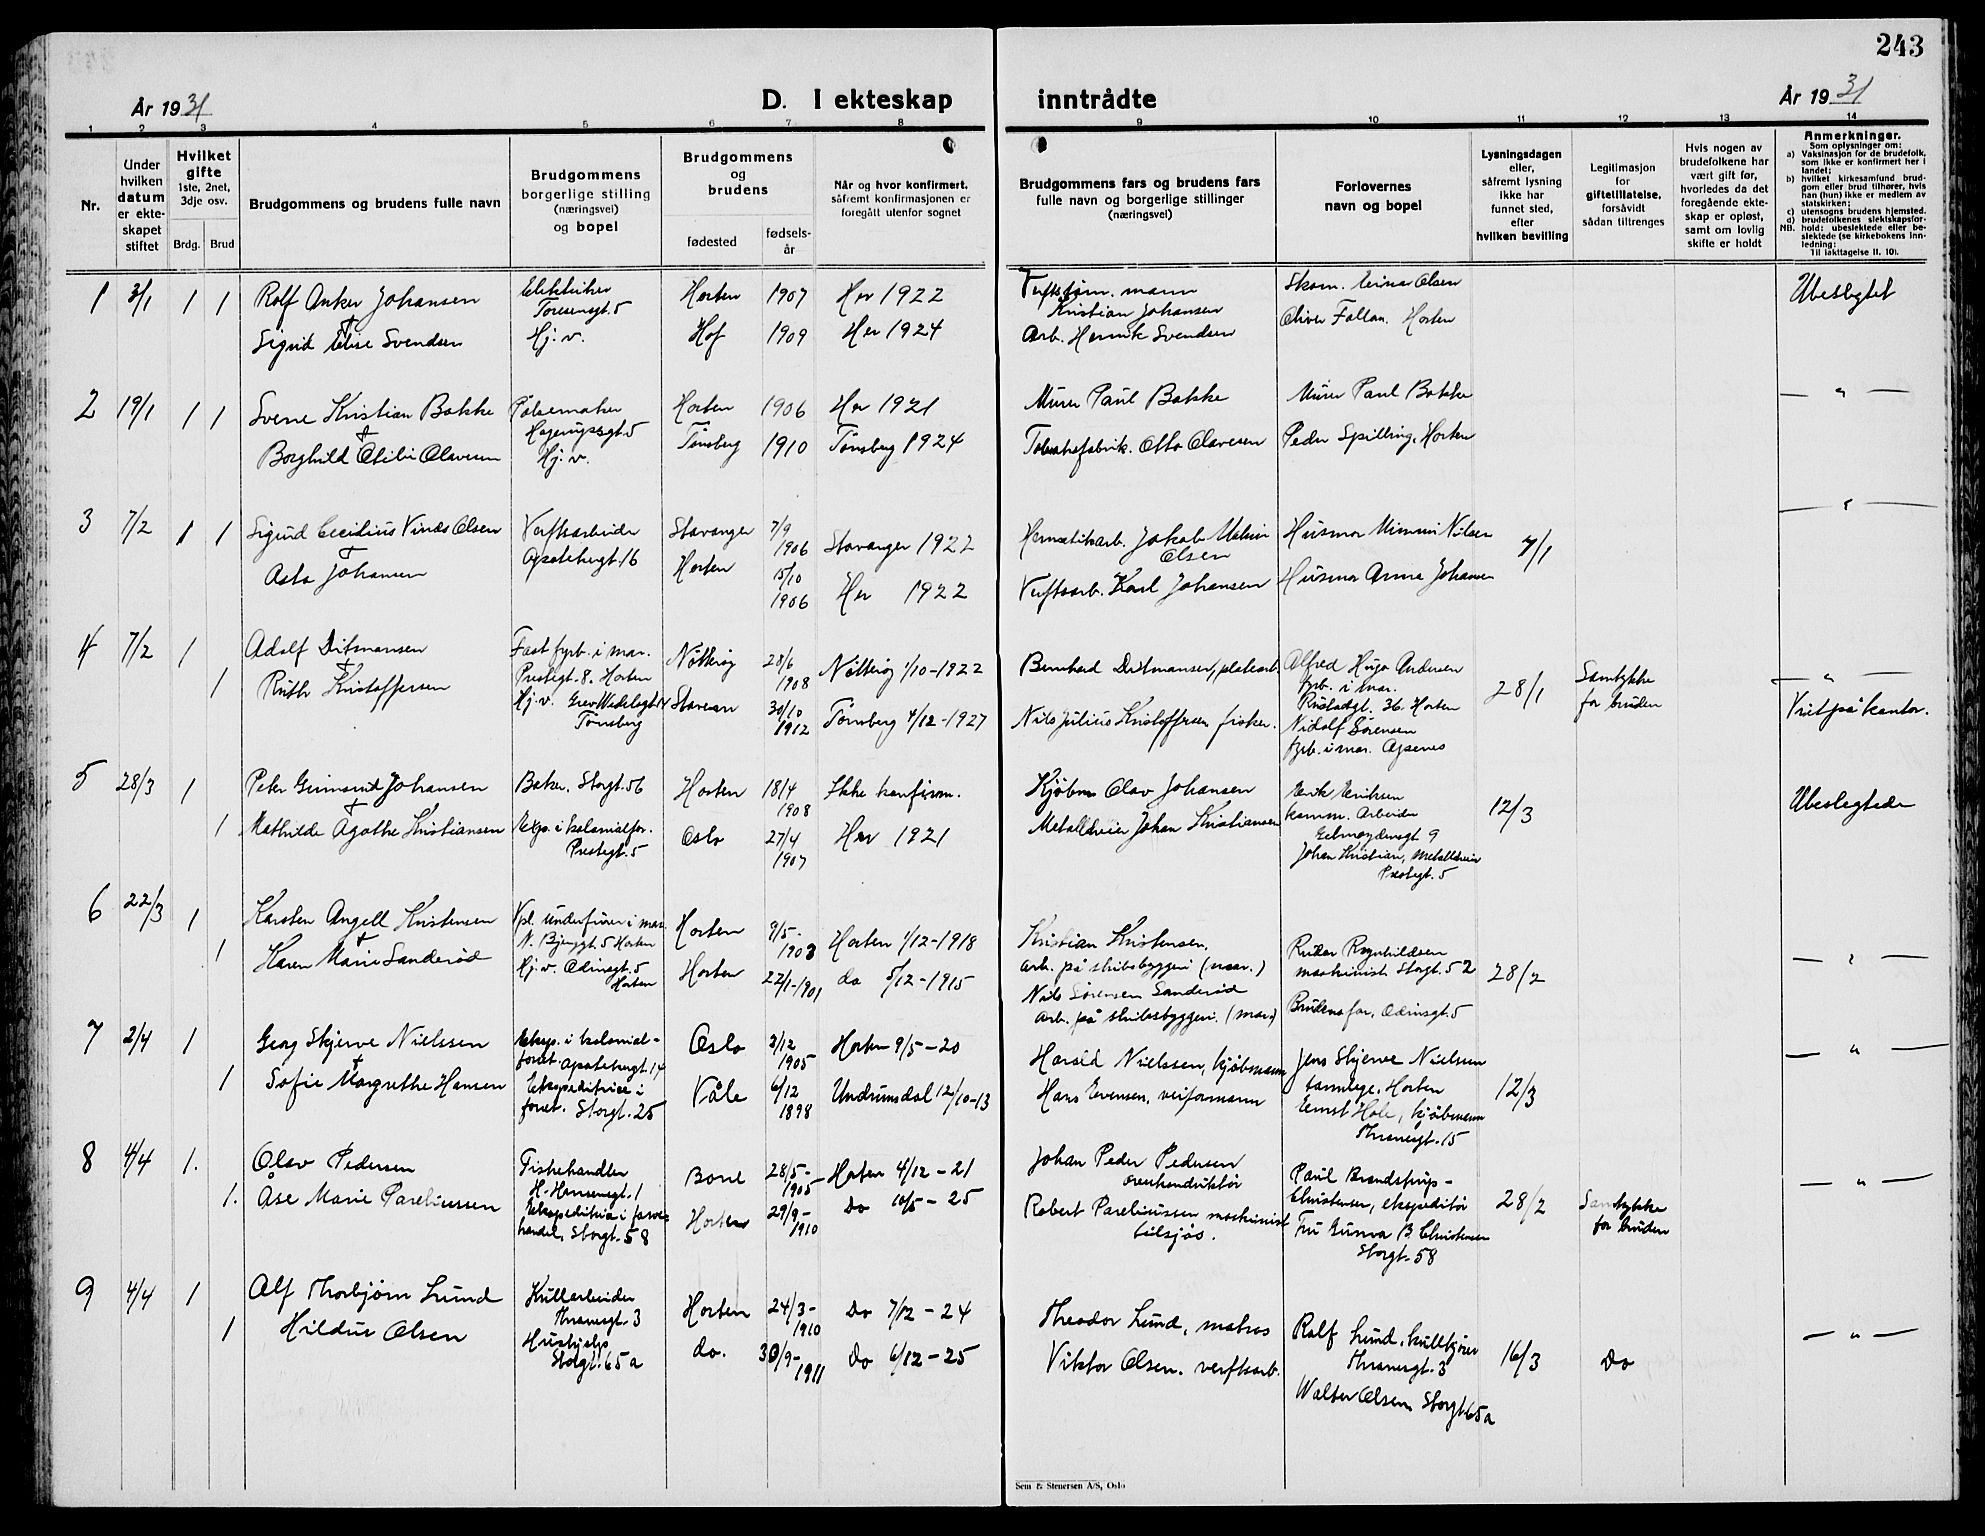 243
År 1931
D. I ekteskap inntrådte
År 1931
1 2 3 4 5 6 7 8 9 10 11 12 13 14
Nr.
Under hvilken datum er ekteskapet stiftet
Hvilket gifte 1ste, 2net, 3dje osv.
Brdg. Brud
Brudgommens og brudens fulle navn
Brudgommens borgerlige stilling (næringsvei) og bopel
Brudgommens og brudens
fødested
fødselsår
Når og hvor konfirmert, såfremt konfirmasjonen er foregått utenfor sognet
Brudgommens fars og brudens fars fulle navn og borgerlige stillinger (næringsvei)
Forlovernes navn og bopel
Lysningsdagen eller, såfremt lysning ikke har funnet sted, efter hvilken bevilling
Legitimasjon for giftetillatelse, forsåvidt sådan tiltrenges
Hvis nogen av brudefolkene har vært gift før, hvorledes da det foregående ekteskap er opløst, samt om lovlig skifte er holdt
Anmerkninger.
Som oplysninger om:
a) Vaksinasjon for de brudefolk, som ikke er konfirmert her i landet;
b) hvilket kirkesamfund brudgom eller brud tilhører, hvis han (hun) ikke er medlem av statskirken;
c) utensogns brudens hjemsted.
d) brudefolkenes slektskapsforhold: ubeslektede eller beslektede (se kirkebokens innledning:
NB.
Til iakttagelse II. 10).
1 3/1 1 1 Rolf Anker Johansen
Elektriker Toresensgt. 5
Horten 1907 Her 1922
Kristian Johansen
Oliver Fallan. Horten
Ubeslegtet
Sigrid Elise Svendsen
Hj. v.
Hof 1909 Her 1924
Arb. Henrik Svendsen
2 19/1 1 1 Sverre Kristian Bakke
Pølsemaker Hagerupsgt. 5
Horten 1906 Her 1921
Murer Paul Bakke
Murer Paul Bakke
— " —
Borghild Otilie Olavesen
Hj. v.
Tønsberg 1910 Tønsberg 1924
Tobakksfabrik. Otto Olavesen
Peder Spilling, Horten
3 7/2 1 1 Sigurd Cecilius Vinds Olsen
Verftsarbeider Apotekergt. 16
Stavanger 7/9 1906 Stavanger 1922
Hermetikarb. Jakob Olsen
Husmor Mimmi Nilsen
7/1
— " —
Asta Johansen
Horten 15/10 1906 Her 1922
Verftsarb. Karl Johansen
Husmor Anna Johansen
4 7/2 1 Adolf Ditmansen
Fast fyrb. i mar. Prestegt. 8. Horten
Nøtterøy 28/6 1908 Nøtterøy 1/10-1922
Bernhard Ditmansen, platearb.
Alfred Hugo Andersen
fyrb. i mar.
Rustadgt. 36. Horten
28/1
Samtykke for bruden
— " —
Viet på kontor.
1 Ruth Kristoffersen
Hj. v. Grev Wedelsgt. 14 Tønsberg
Stavern 30/10 1912 Tønsberg 4/12-1927
Nils Julius Kristoffersen fisker.
Nidolf Sørensen
fyrb. i mar. Apenes
5 28/3 1 Peter Germund Johansen
Baker, Storgt. 56
Horten 18/4 1908 Ikke konfirm.
Kjøbm Olav Johansen
Erik Eriksen
komm. Arbeider
12/3
Ubeslegtede
1 Mathilde Agathe Kristiansen
Eksp. i kolonialfor. Prestegt. 5
Oslo 27/4 1907 Her 1921
Metalldreier Johan Kristiansen
Johan Kristian, metalldreier
Prestegt. 5
6 22/3 1 Karsten Angell Kristensen
Vpl. underfurer i mar. N. Bjerggt. 5 Horten
Horten 9/5-1903 Horten 1/12-1918
Kristian Kristensen,
arb. på skibsbyggeri (mar.)
maskinist Storgt. 52
28/2
— " —
1 Karen Marie Sanderød
Hj. v. Odinsgt. 5 Horten
Horten 22/1-1901 do 5/12-1915
Nils Sørensen Sanderød
arb. på skibsbyggeri. (mar.)
Brudens far, Odinsgt. 5
7 2/4 1 Georg Skjerve Nielssen
Eksp. i kolonialforet. Apotekergt. 14
Oslo 2/12 1905 Horten 9/5-20
Harald Nielssen, kjøbmann
Jens Skjerve Nielssen
tannlege, Horten
12/3
— " —
1 Sofie Margrethe Hansen
Ekspeditrise i foret. Storgt. 25
Våle 6/12 1898 Undrumsdal 12/10-13
Hans Evensen, veiformann
Ernst Hole, kjøbmann
Thranesgt. 15
8 4/4 1. Olav Pedersen
Fiskehandler H. Hansensgt. 1
Borre 28/5-1905 Horten 4/12-21
Johan Peder Pedersen
overkonduktør
Paul Brandstrup-
Christensen, ekspeditør
28/2
Samtykke for bruden
— " —
1. Åse Marie Pareliussen
Storgt. 58
Horten 29/9-1910 Do 10/5-25
Robert Pareliussen maskinist
tilsjøs.
Fru Gunva B. Christensen
Storgt. 58
9 4/4 1 Alf Thorbjørn Lund
Kullarbeider Thranesgt. 3
Horten 24/3-1910 Do 7/12-24
Theodor Lund, matros
Rolf Lund, kullkjører
Thranesgt. 3
16/3
Do
— " —
1 Hildur Olsen
Hushjelp Storgt. 65a
do. 30/9-1911 Do 6/12-25
Viktor Olsen. verftsarb.
Walter Olsen, Storgt 65a
Sem & Stenersen A/S, Oslo